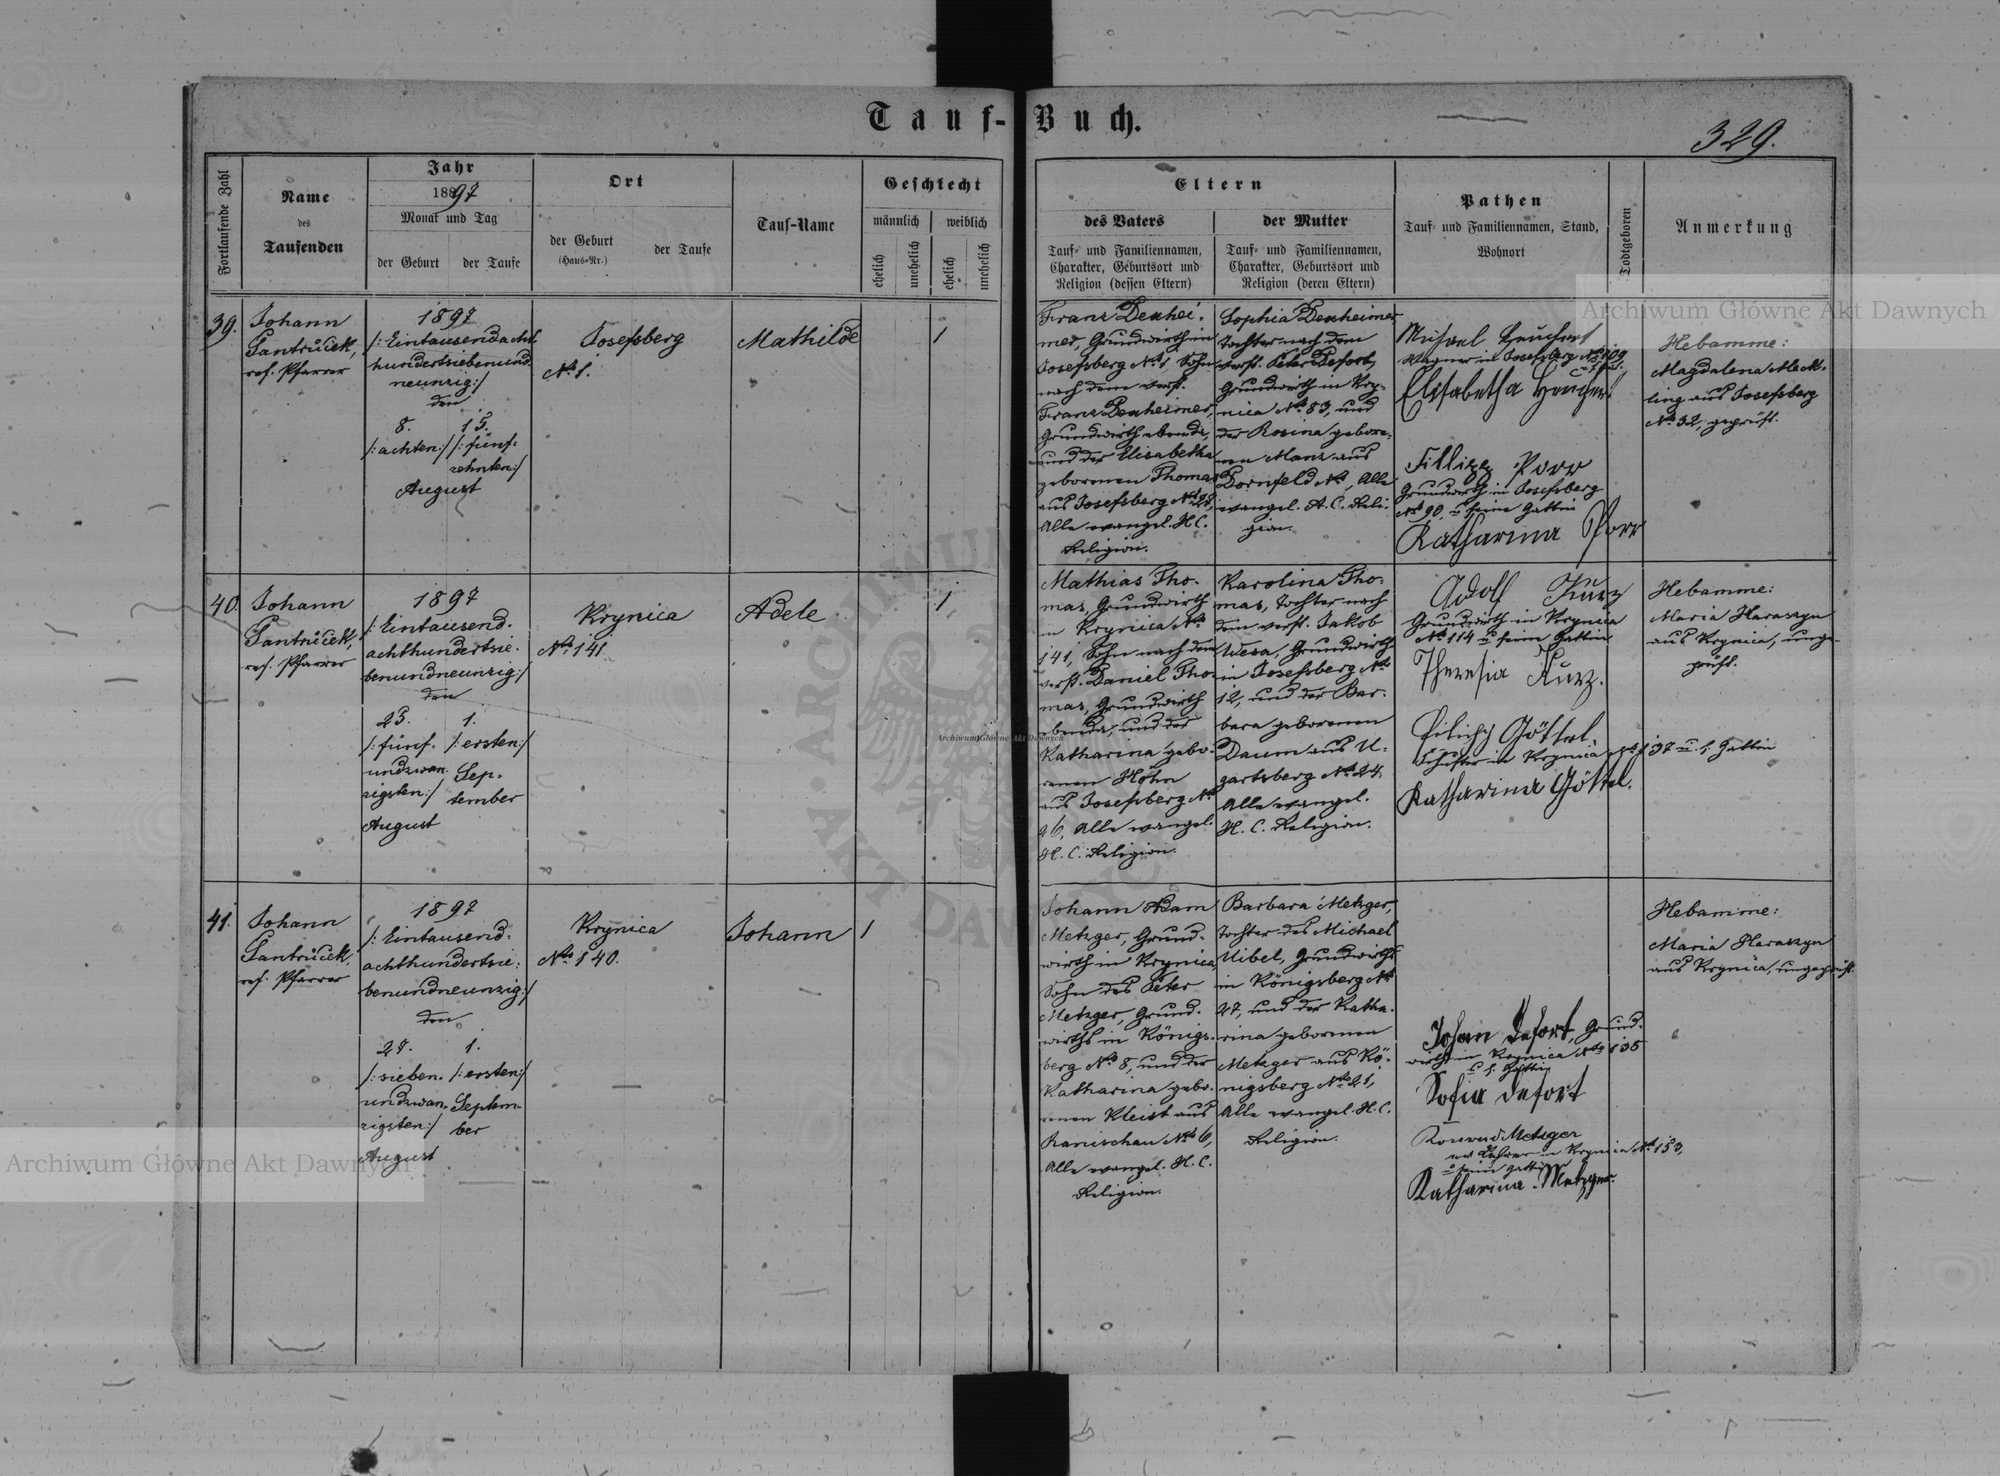 Tauf-Buch.
329.
Fortlaufende Zahl
Name
des
Taufenden
Jahr
1897
Monat und Tag
der Geburt
der Taufe
Ort
der Geburt
(Haus-Nr.)
der Taufe
Tauf-Name
Geschlecht
männlich
weiblich
ehelich
unehelich
ehelich
unehelich
Eltern
des Vaters
Tauf- und Familiennamen,
Charakter, Geburtsort und
Religion (dessen Eltern)
der Mutter
Tauf- und Familiennamen,
Charakter, Geburtsort und
Religion (deren Eltern)
Pathen
Tauf- und Familiennamen, Stand,
Wohnort
Todtgeboren
Anmerkung
39.
Johann
Pantrůček,
ref. Pfarrer
1897
/:Eintausendacht-
hundertsiebenund-
neunzig:/
den
8. 15.
/:achten:/ /:fünf-
zehnten:/
August
Josefsberg
No 1.
Mathilde
1
Franz Dexhei-
mer, Grundwirth in
Josefsberg No 1, Sohn
nach dem verst.
Franz Dexheimer,
Grundwirth ebenda,
und der Elisabetha
geborenen Thomas
aus Josefsberg No 28,
Alle evangel. H.C.
Religion.
Sophia Dexheimer
Tochter nach dem
verst. Peter Defort,
Grundwirth in Kry-
nica No 83, und
der Rosina gebore-
nen Manz aus
Dornfeld No , Alle
evangel. A.C. Reli-
gion.
Wagner in Josefsberg No 109
Elisabetha
Fillipp Porr
Grundwirth in Josefsberg
No 90, u seine Gattin
Katharina Porr
Hebamme:
Magdalena Meck-
ling aus Josefsberg
No 32, geprüft.
40.
Johann
Pantrůček,
ref. Pfarrer
1897
/:Eintausend-
achthundertsie-
benundneunzig:/
den
25. 1.
/:fünf- /:ersten:/
undzwan- Sep-
zigsten:/ tember
August
Krynica
No 141
Adele
1
Mathias Tho-
mas, Grundwirth
in Krynica No
141, Sohn nach dem
verst. Daniel Tho-
mas, Grundwirth
ebenda, und der
Katharina gebo-
renen Höhn
aus Josefsberg No
26, Alle evangel.
H. C. Religion.
Karolina Tho-
mas, Tochter nach
dem verst. Jakob
Wesa, Grundwirth
in Josefsberg No
12, und der Bar-
bara geborenen
Daum aus U-
gartsberg No 24,
Alle evangel.
H. C. Religion.
Adolf Kurz
Grundwirth in Krynica
No 114 u seine Gattin
Theresia Kurz.
Filipp Göttel,
Schuster in Krynica No 137 u. s. Gattin
Katharina Göttel.
Hebamme:
Maria Haraszyn
aus Krynica, unge-
prüft.
41.
Johann
Pantrůček,
ref. Pfarrer
1897
/:Eintausend-
achthundertsie-
benundneunzig:/
den
27. 1.
/:sieben- /:ersten:/
undzwan- Septem-
zigsten:/ ber
August
Krynica
No 140.
Johann
1
Johann Adam
Metzger, Grund-
wirth in Krynica,
Sohn des Peter
Metzger, Grund-
wirths in Königs-
berg No 8, und der
Katharina gebo-
renen Kleist aus
Ranischau No 6,
Alle evangel. H. C.
Religion.
Barbara Metzger,
Tochter des Michael
Uibel, Grundwirths
in Königsberg No
27, und der Katha-
rina geborenen
Metzger aus Kö-
nigsberg No 21,
Alle evangel. H. C.
Religion.
Johan Defort, Grund-
wirth in Krynica No 135
u s. Gattin
Sofia Defort
Konrad Metzger
ev Lehrer in Krynica No 153,
u seine Gattin
Katharina Metzger.
Hebamme:
Maria Haraszyn
aus Krynica, ungeprüft.
Archiwum Główne Akt Dawnych
Archiwum Główne Akt Dawnych
Archiwum Główne Akt Dawnych